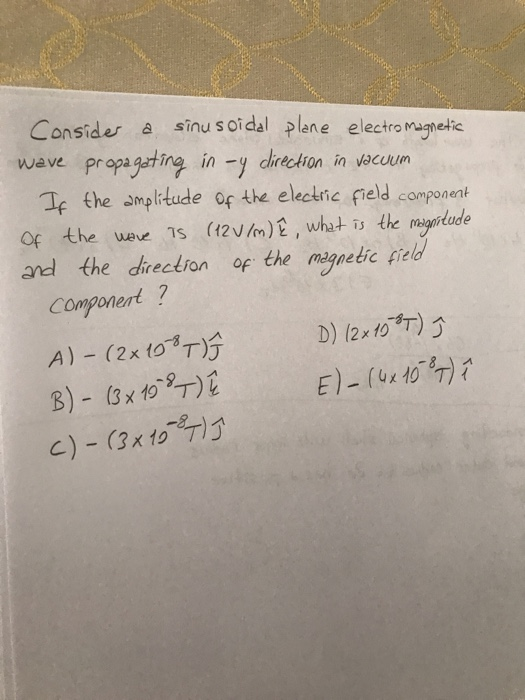 Consider a sinusoidal plane electromagnetic
wave propagating in -y direction in vacuum
If the amplitude of the electric field component
Of the wave is (12V/m)k̂, what is the magnitude
and the direction of the magnetic field
component?
A) - (2x10⁻⁸T)ĵ
B) - (3x10⁻⁸T)k̂
C) - (3x10⁻⁸T)ĵ
D) (2x10⁻⁸T) ĵ
E) - (4x10⁻⁸T) î